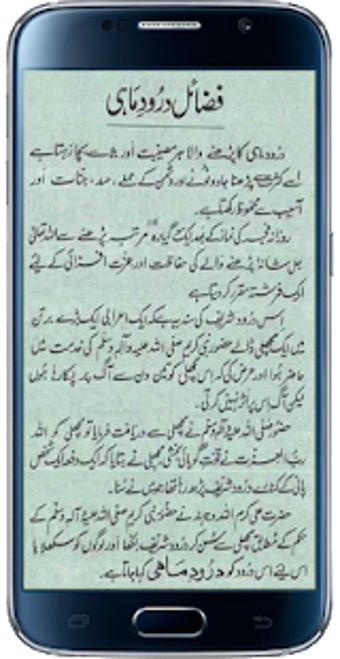 فضائل درُود ماہی
درُود ماہی کا پڑھنے والا ہر مصیبت اَور بلا سے بچا رہتا ہے
اسے کثرت پڑھنا جادو ٹونے اور دشمن کے حملے، حسد، جنات اَور
آسیب سے محفوظ رکھتا ہے۔
روزانہ فجر کی نماز کے بعد ایک سو گیارہ مرتبہ پڑھنے سے اللہ تعالیٰ
جل شانہٗ پڑھنے والے کی حفاظت اور عزت افزائی کے لیئے
ایک فرشتہ مقرر کر دیتا ہے
اِس درُود شریف کی سند یہ ہے کہ ایک اعرابی ایک بڑے برتن
میں ایک مچھلی ڈالے حضور نبی کریم صلی اللہ علیہ وآلہٖ وسلم کی خدمت میں
حاضر ہوا اور عرض کی کہ اس مچھلی کو تین دن سے آگ پر پکا رہا ہوں
لیکن آگ اِس پر اثر نہیں کرتی۔
حضور صلی اللہ علیہ وآلہ وسلم نے مچھلی سے دریافت فرمایا تو مچھلی کو اللہ
ربُّ العزت نے قوّتِ گویائی بخشی مچھلی نے بتایا کہ ایک دفعہ ایک شخص
پانی کے کنارے درُود شریف پڑھ رہا تھا جو میں نے سُنا۔
حضرت علی کرم اللہ وجہہٗ نے حضور نبی کریم صلی اللہ علیہ وآلہٖ وسلم کے
حکم کے مطابق مچھلی سے سُن کر درُود شریف لکھا اَور لوگوں کو سکھلا یا
اس لیے اس درُود کو درُودِ ماہی کہا جاتا ہے۔